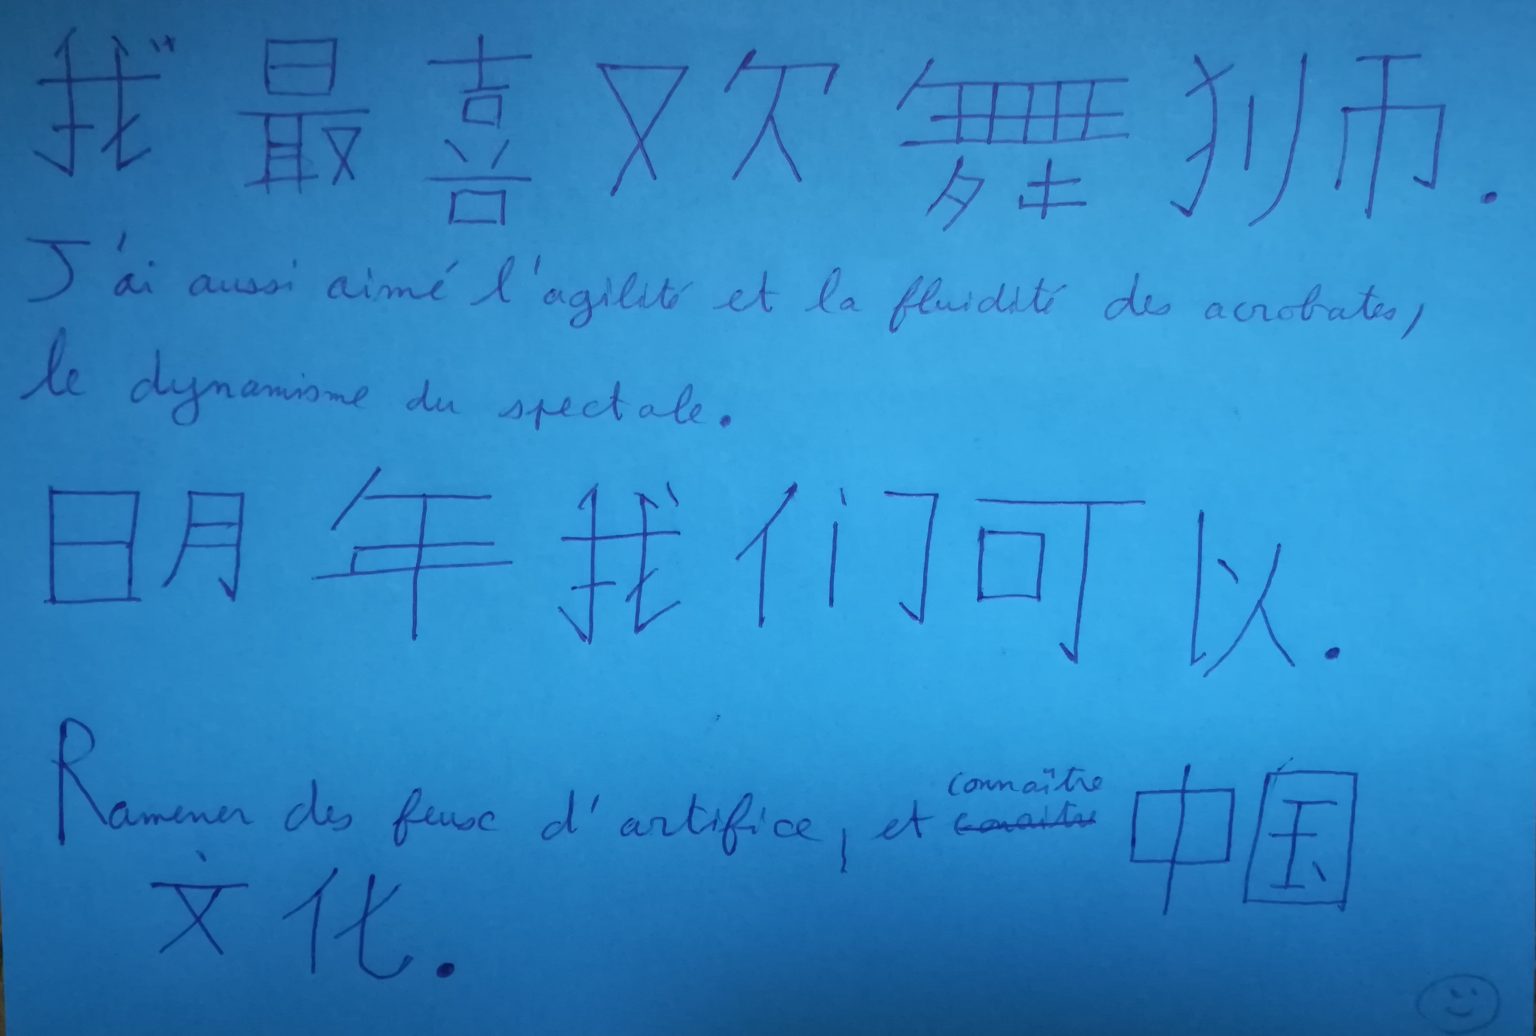 我最喜欢舞狮.
J'ai aussi aimé l'agilité et la fluidité des acrobates,
le dynamisme du spectale.
明年我们可以.
Ramener des feux d'artifice, et connaître 中国
文化.